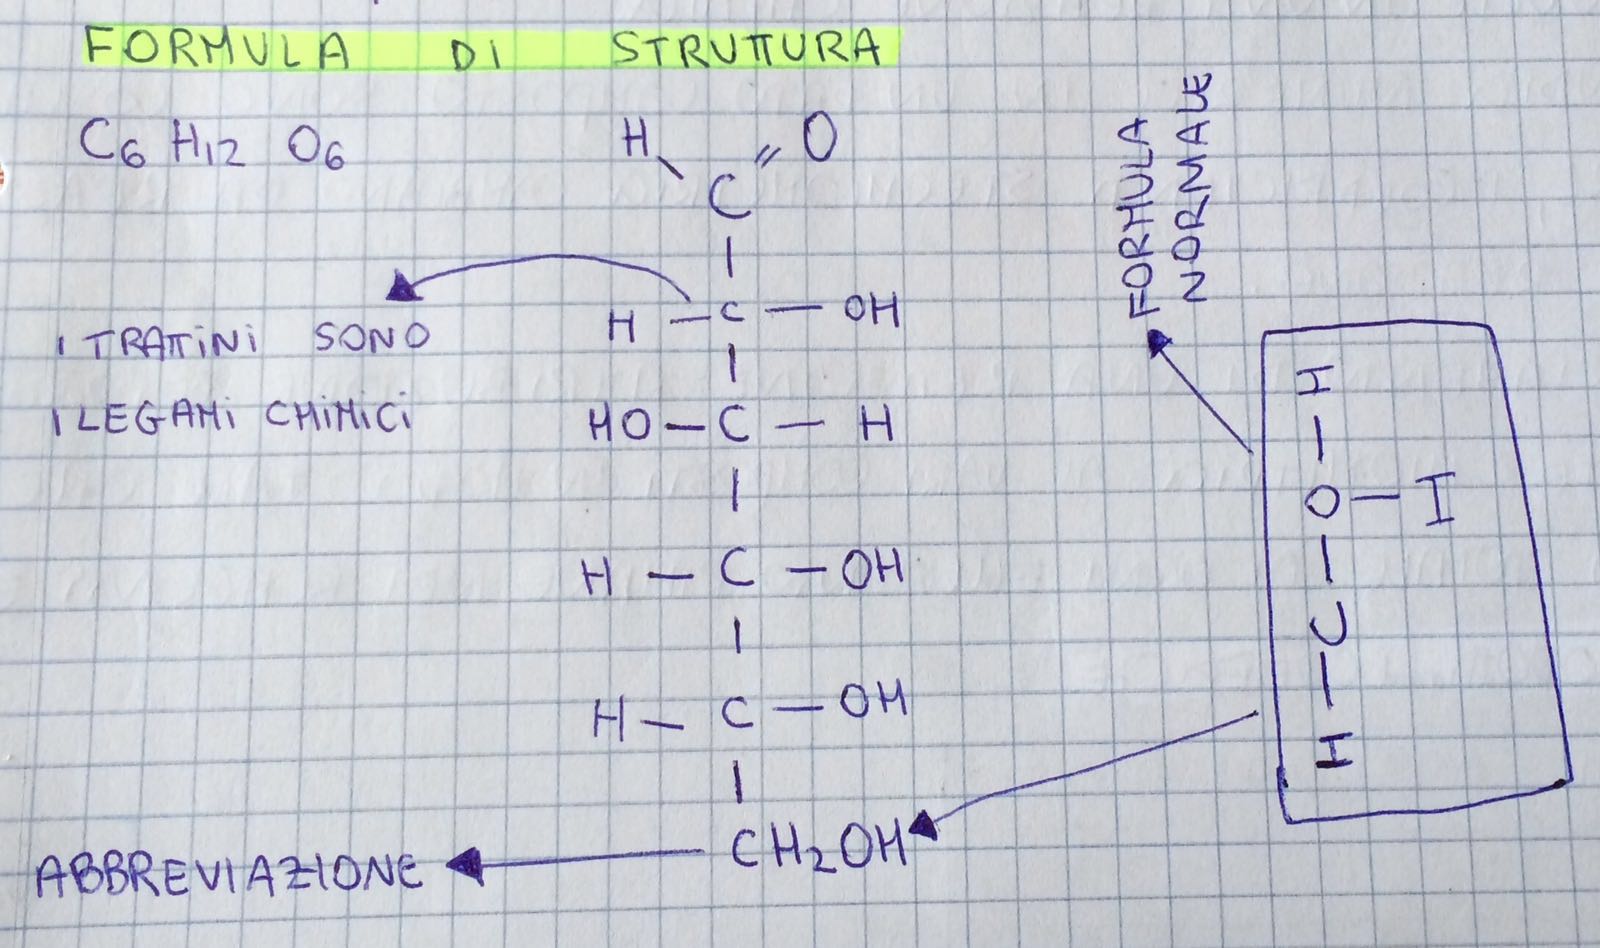 FORMULA DI STRUTTURA
C6 H12 O6
H O
C
H - C - OH
I TRATTINI SONO
I LEGAMI CHIMICI
HO - C - H
H - C - OH
H - C - OH
CH2OH
ABBREVIAZIONE
FORMULA
NORMALE
H - C - O - H
H